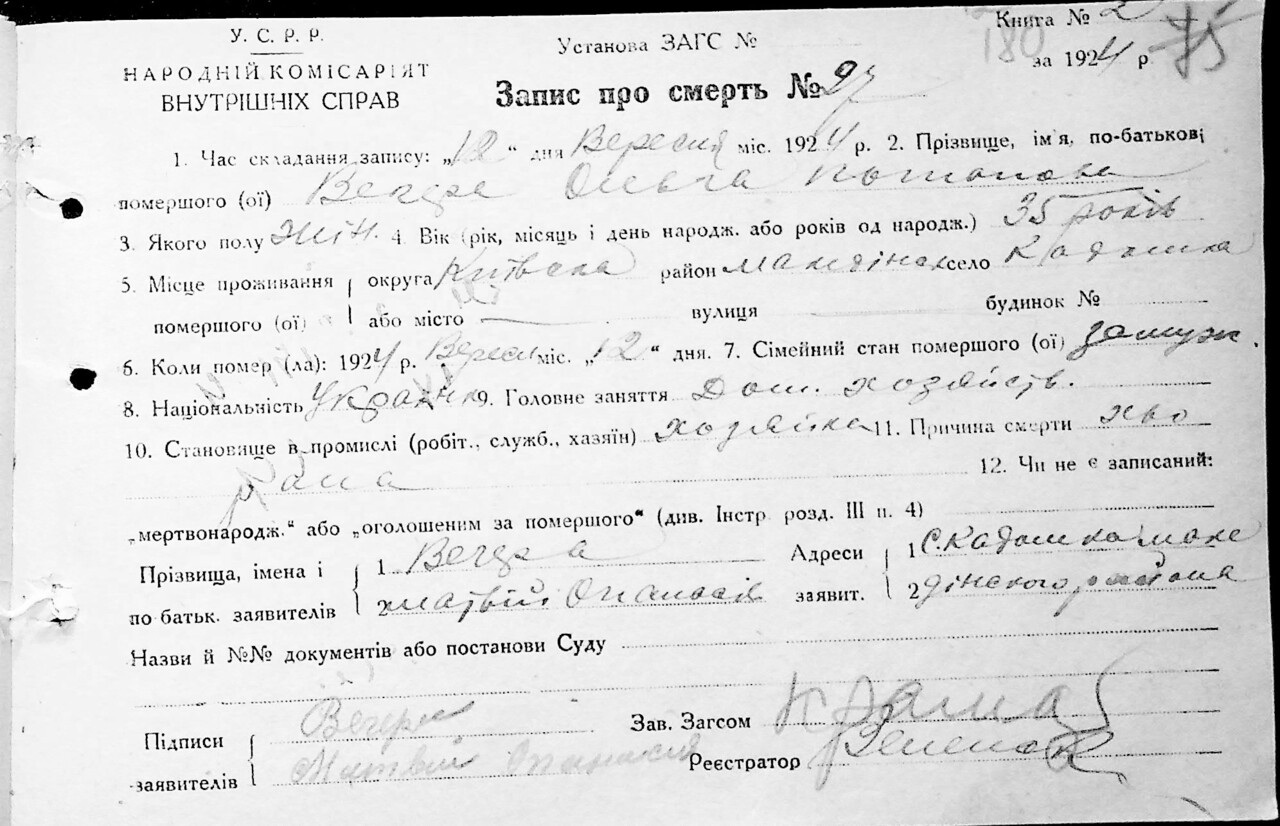 У. С. Р. Р.
НАРОДНІЙ КОМІСАРІЯТ
ВНУТРІШНІХ СПРАВ
Установа ЗАГС №
Запис про смерть № 97
Книга № 2
180 75
за 1924 р.
1. Час складання запису: „12“ дня Вересня міс. 1924 р. 2. Прізвище, ім'я, по-батькові
помершого (ої) Ольга Потапова
3. Якого полу Жін. 4. Вік (рік, місяць і день народж. або років од народж.) 35 років
5. Місце проживання округа Київска район село Кадомка
помершого (ої) або місто вулиця будинок №
6. Коли помер (ла): 1924 р. Вересн міс. „12“ дня. 7. Сімейний стан помершого (ої) замуж.
8. Національність Українк 9. Головне заняття Дом. хозяйств.
10. Становище в промислі (робіт., служб., хазяїн) хозяйка 11. Причина смерти хво
12. Чи не є записаний:
„мертвонародж.“ або „оголошеним за помершого“ (див. Інстр. розд. III п. 4)
Прізвища, імена і 1 Адреси 1 С. Кадомка мака
по батьк. заявителів 2 Матвій Опанасів заявит. 2 дінского района
Назви й №№ документів або постанови Суду
Підписи Зав. Загсом
заявителів Матвій Опанасів Реєстратор